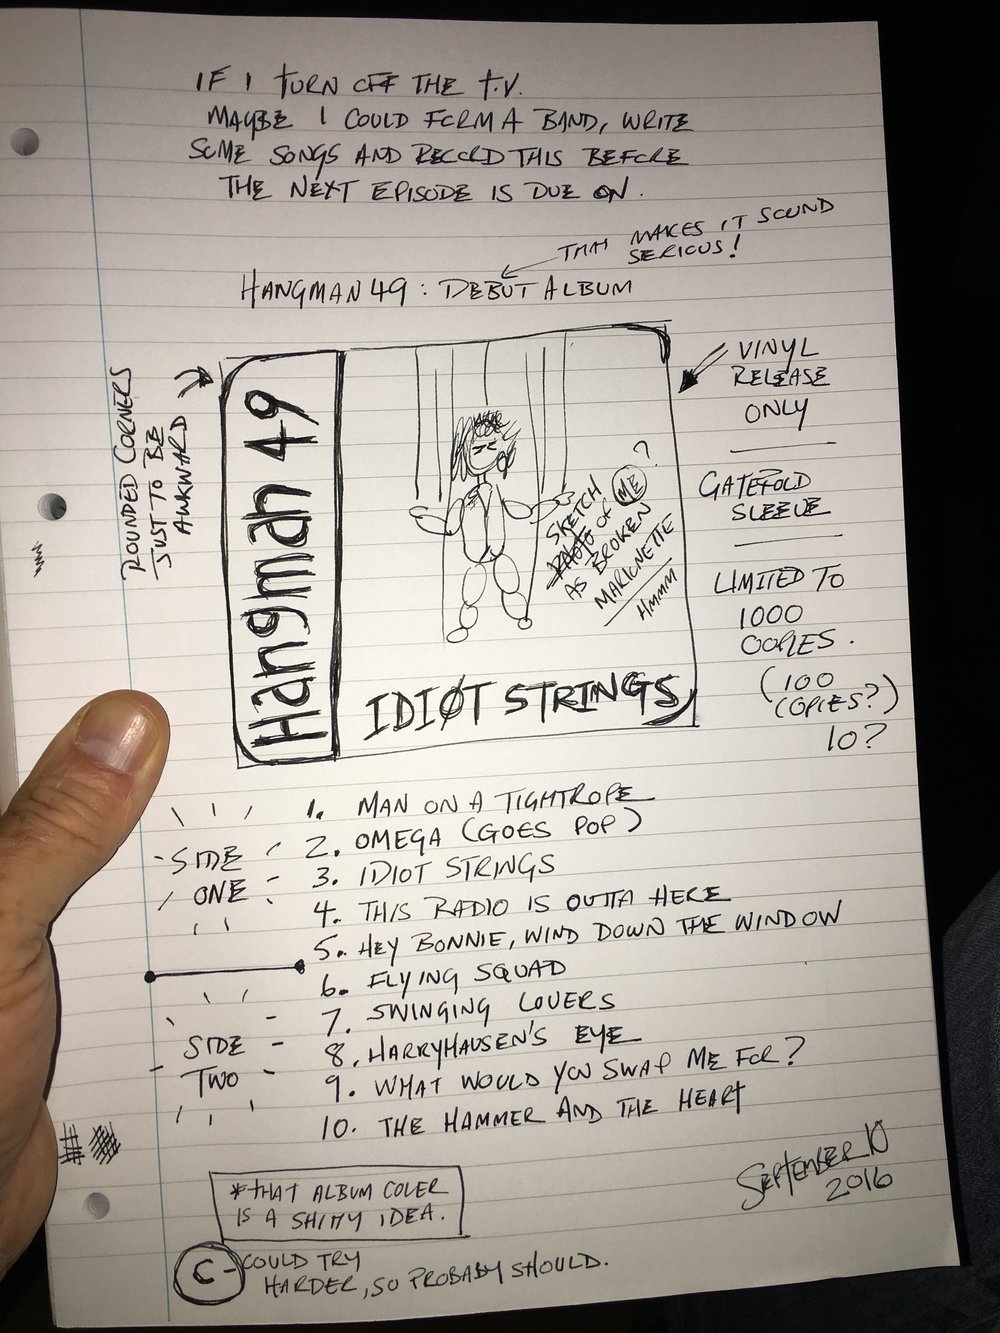 IF I TURN OFF THE T.V.
MAYBE I COULD FORM A BAND, WRITE
SOME SONGS AND RECORD THIS BEFORE
THE NEXT EPISODE IS DUE ON.
THAT MAKES IT SOUND
SERIOUS!
HANGMAN 49 : DEBUT ALBUM
ROUNDED CORNERS
JUST TO BE
AWKWARD
Hangman 49
SKETCH
OF ME?
AS BROKEN
MARIONETTE
HMMM
IDIØT STRINGS
VINYL
RELEASE
ONLY
GATEFOLD
SLEEVE
LIMITED TO
1000
COPIES.
(100
COPIES?)
10?
SIDE
ONE
1. MAN ON A TIGHTROPE
2. OMEGA (GOES POP)
3. IDIOT STRINGS
4. THIS RADIO IS OUTTA HERE
5. HEY BONNIE, WIND DOWN THE WINDOW
SIDE
TWO
6. FLYING SQUAD
7. SWINGING LOVERS
8. HARRYHAUSEN'S EYE
9. WHAT WOULD YOU SWAP ME FOR?
10. THE HAMMER AND THE HEART
SEPTEMBER 10
2016
*THAT ALBUM COVER
IS A SHITTY IDEA.
C- COULD TRY
HARDER, SO PROBABY SHOULD.